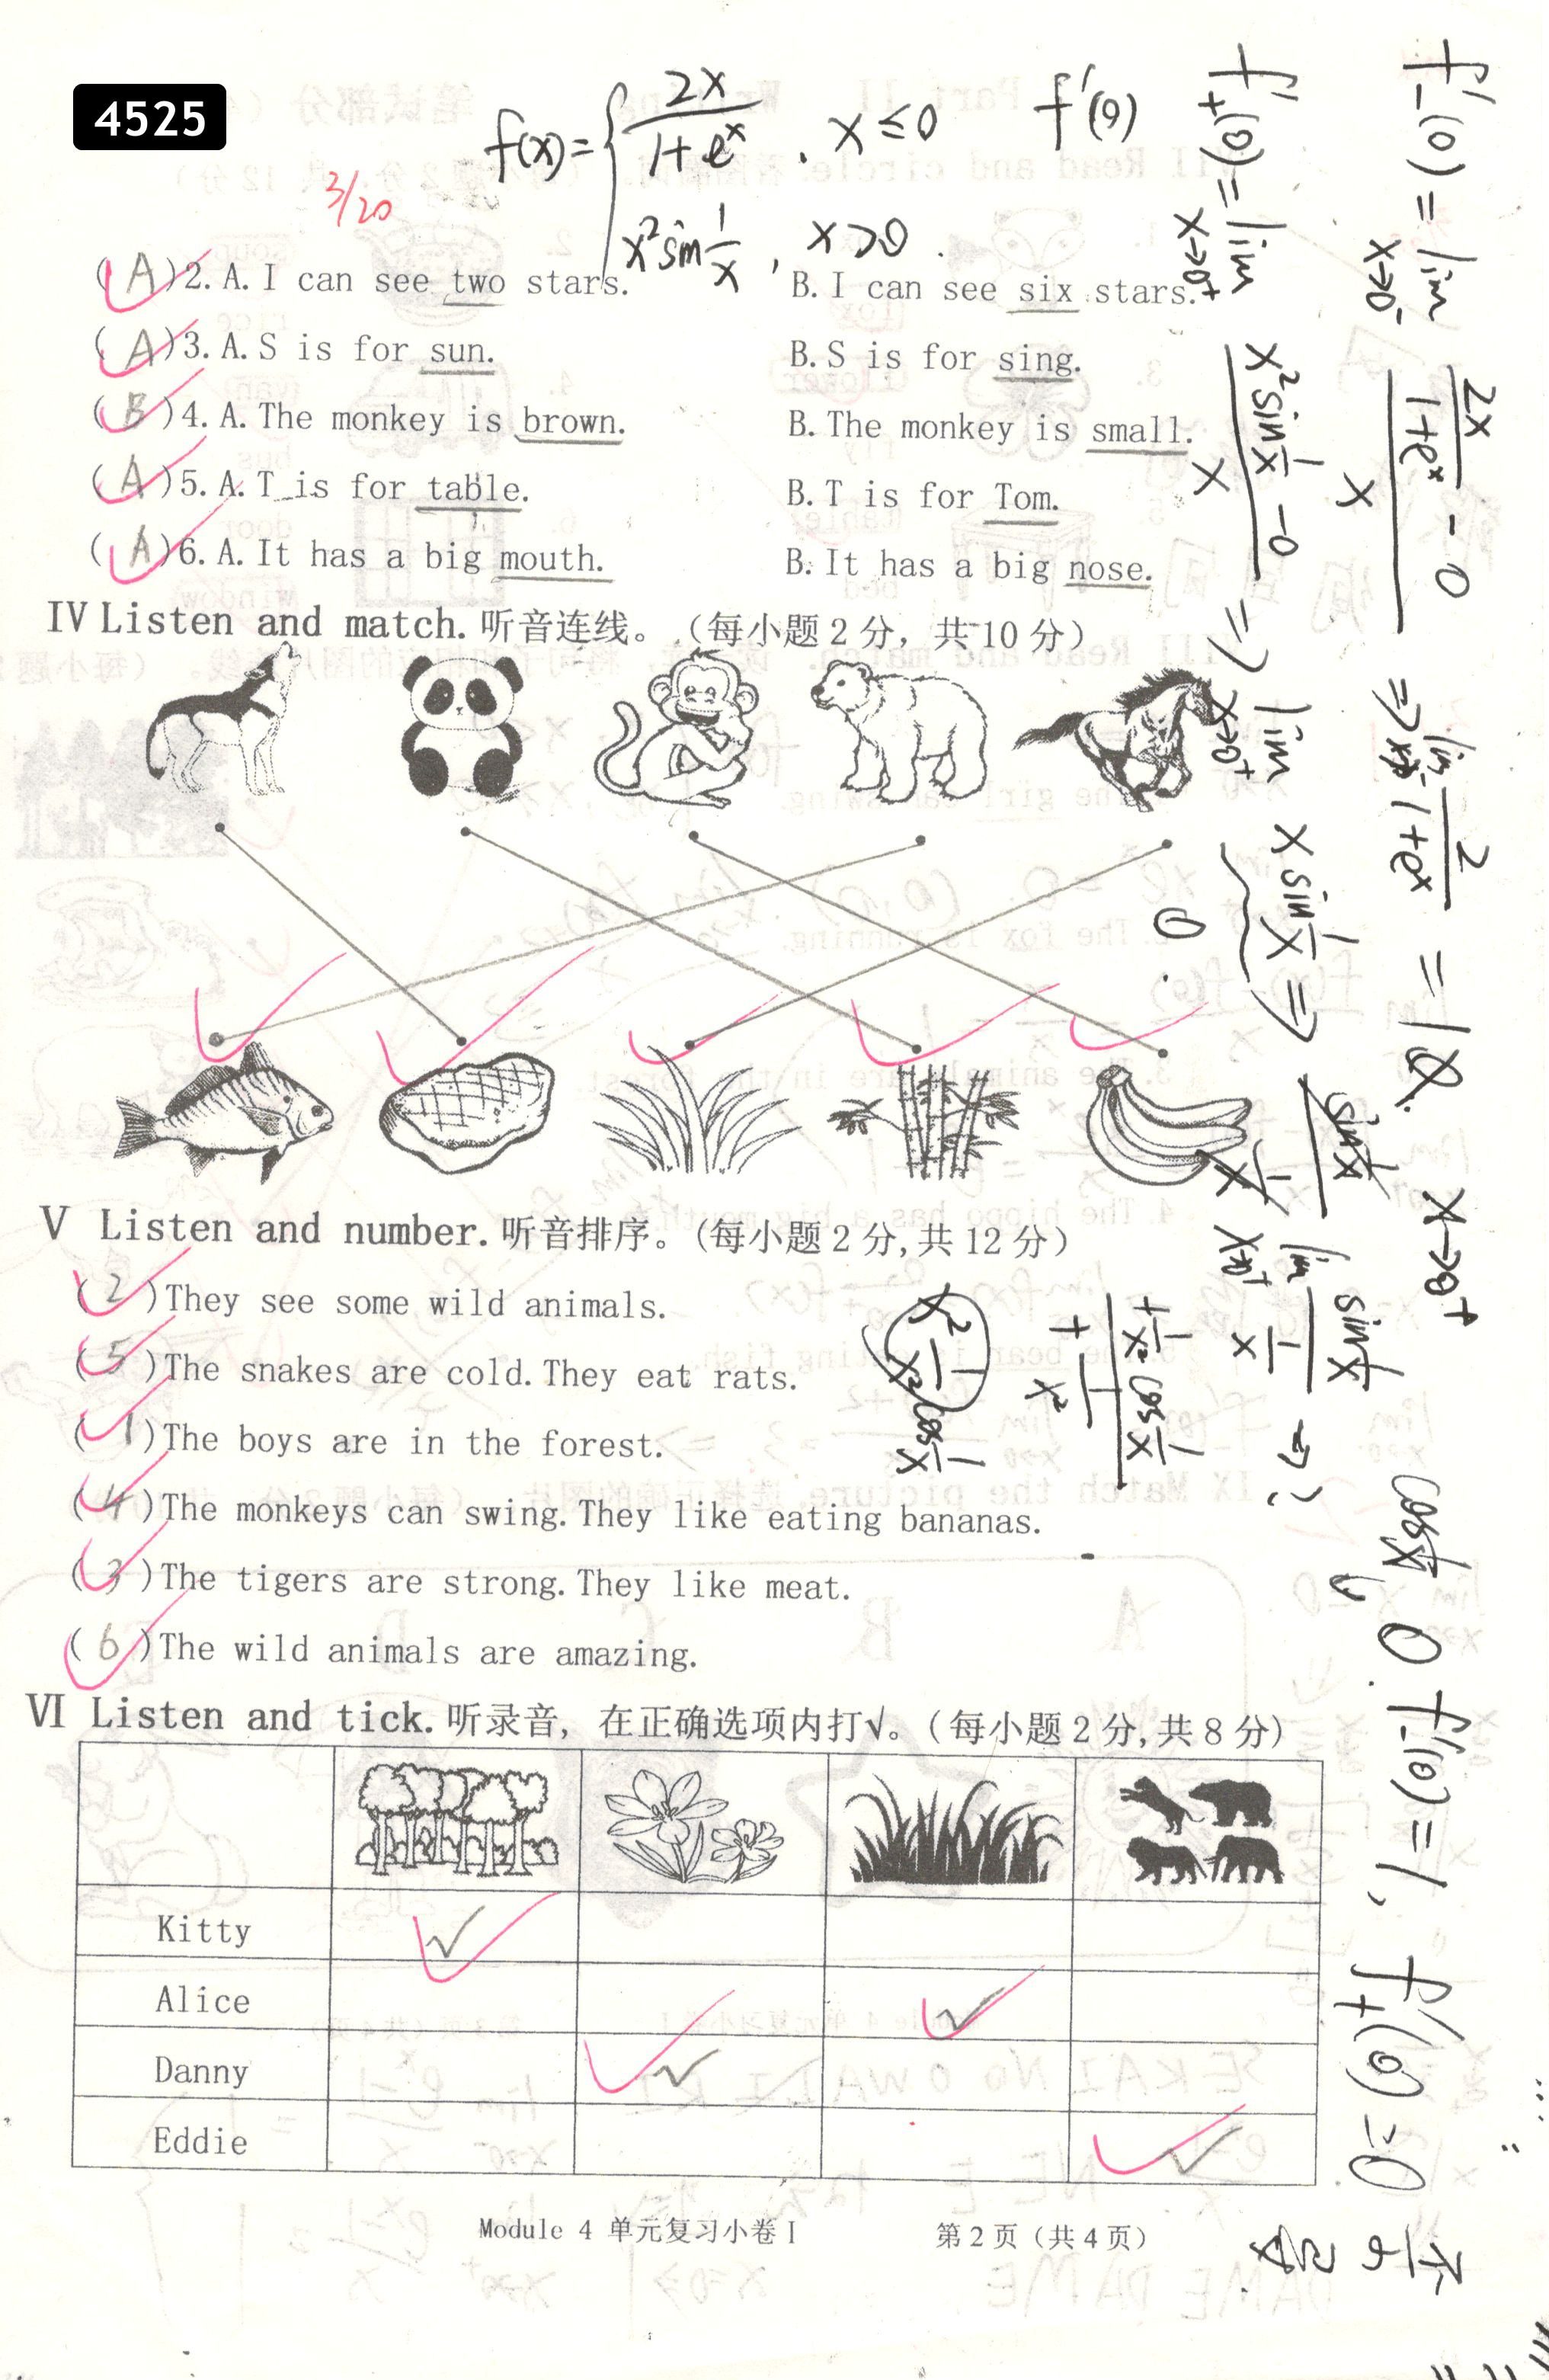 4525
f(x)={ 2x/(1+e^x), x≤0 f'(0)
x² sin 1/x, x>0.
3/20
(A)2. A. I can see two stars. B. I can see six stars.
(A)3. A. S is for sun. B. S is for sing.
(B)4. A. The monkey is brown. B. The monkey is small.
(A)5. A. T is for table. B. T is for Tom.
(A)6. A. It has a big mouth. B. It has a big nose.
IV Listen and match. 听音连线。（每小题2分，共10分）
V Listen and number. 听音排序。（每小题2分,共12分）
(2)They see some wild animals.
(5)The snakes are cold. They eat rats.
(1)The boys are in the forest.
(4)The monkeys can swing. They like eating bananas.
(3)The tigers are strong. They like meat.
(6)The wild animals are amazing.
VI Listen and tick. 听录音，在正确选项内打√。（每小题2分,共8分）
Kitty √
Alice √
Danny √
Eddie √
Module 4 单元复习小卷I 第2页（共4页）
f'₋(0) = lim x→0⁻ (2x/(1+e^x) - 0)/x ⇒ lim 2/(1+e^x) = 1
x→0⁺
f'₋(0)=1, f'₊(0)=0
f'₊(0) = lim x→0⁺ (x² sin 1/x - 0)/x ⇒ lim x→0⁺ x sin 1/x ⇒
0.
lim x→0⁺ sin 1/x / 1/x ⇒
x² 1/x² cos 1/x